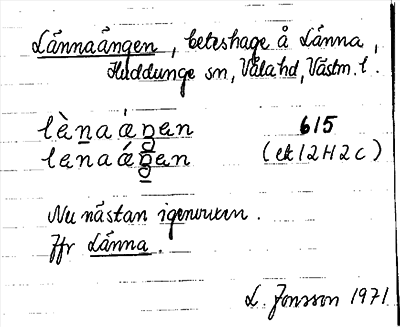 Lännaängen, beteshage å Länna,
Huddunge sn, Våla hd, Västm. l.
lènaáŋan 615
lenaáŋan (ek 12H2c)
Nu nästan igenvuxen.
Jfr Länna.
L. Jonsson 1971